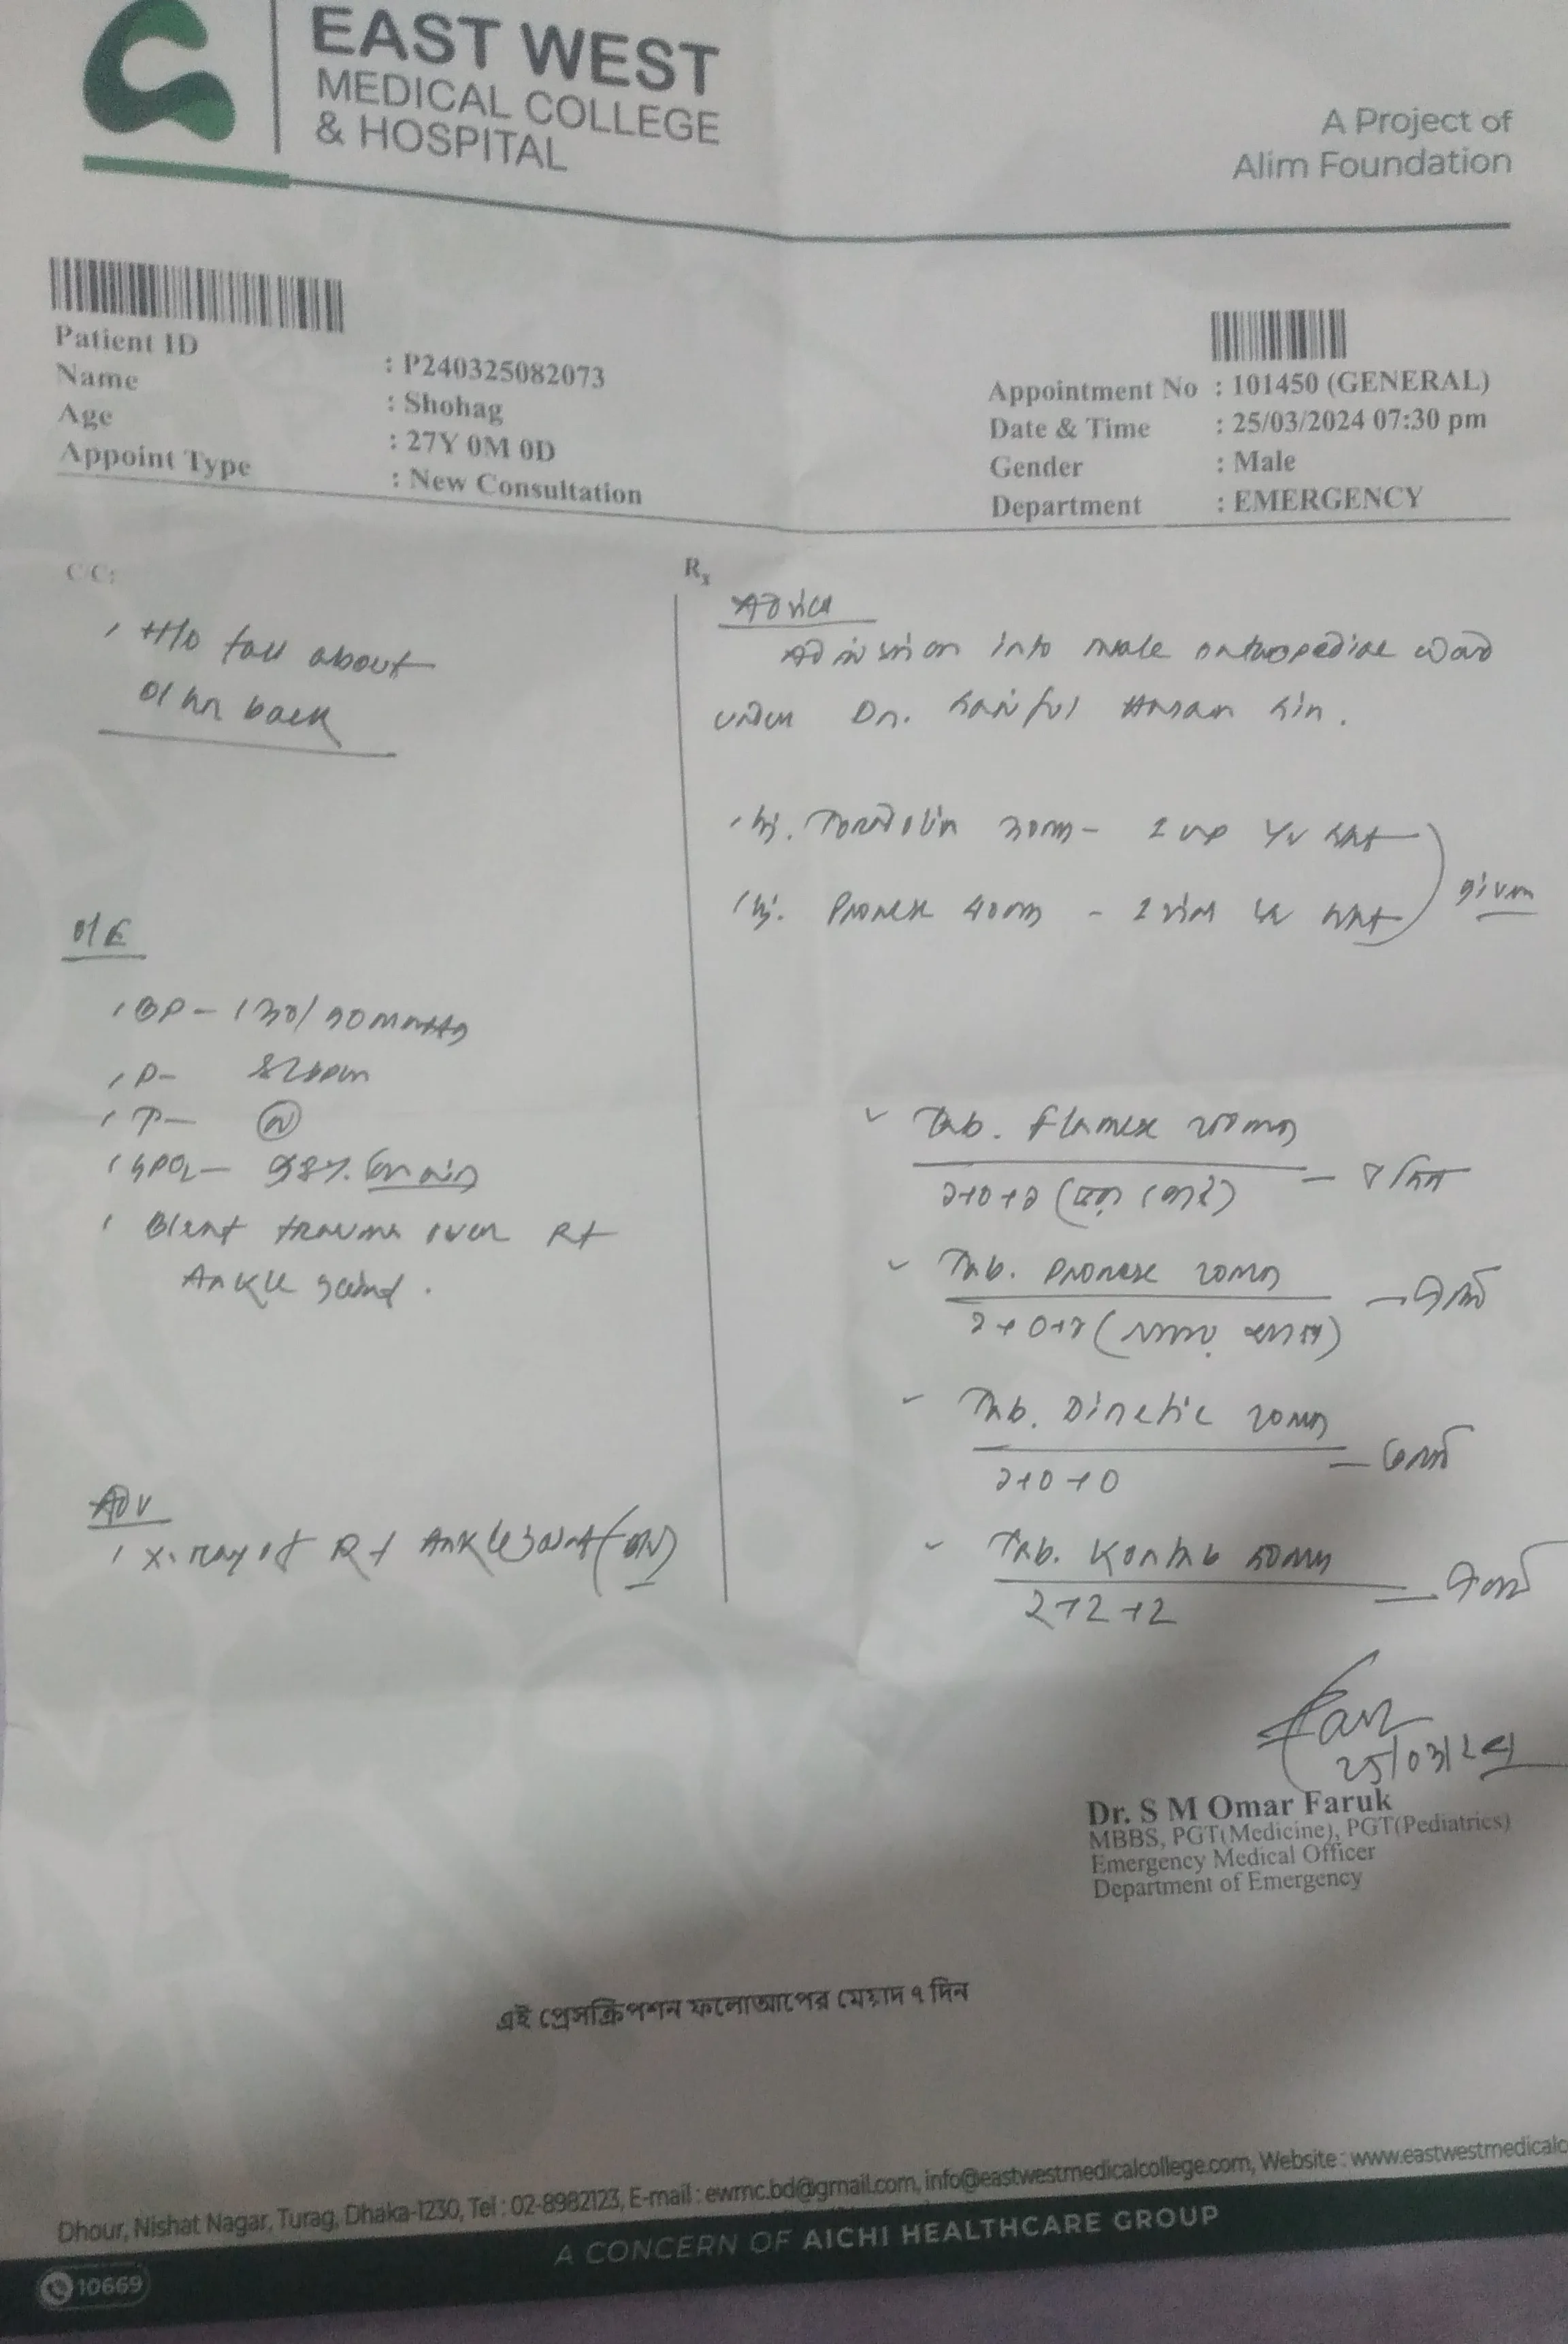 EAST WEST
MEDICAL COLLEGE
& HOSPITAL
A Project of
Alim Foundation
Patient ID : P240325082073
Name : Shohag
Age : 27Y 0M 0D
Appoint Type : New Consultation
Appointment No : 101450 (GENERAL)
Date & Time : 25/03/2024 07:30 pm
Gender : Male
Department : EMERGENCY
C/C:
H/O fall about
01 hr back
O/E
BP- 130/90mmHg
P- 82bpm
T- N
SPO2- 98%
Blunt trauma over Rt
Ankle joint.
Adv
X-ray of Rt Ankle joint (B/V)
Rx
Advice
Admission into male orthopedics ward
under Dr. Hasan Sir.
Inj. 30mg- 1 IV stat
Inj. Pronex 40mg - 1 vial IV stat
given
Tab. Flamex
১+০+১
Tab. Pronex 20mg
১+০+১
Tab. Dinetic 20mg
১+০+০
Tab.
2+2+2
25/03/24
Dr. S M Omar Faruk
MBBS, PGT(Medicine), PGT(Pediatrics)
Emergency Medical Officer
Department of Emergency
এই প্রেসক্রিপশন ফলোআপের মেয়াদ ৭ দিন
Dhour, Nishat Nagar, Turag, Dhaka-1230, Tel : 02-8982123, E-mail : ewmc.bd@gmail.com, info@eastwestmedicalcollege.com, Website : www.eastwestmedicalc
A CONCERN OF AICHI HEALTHCARE GROUP
10669